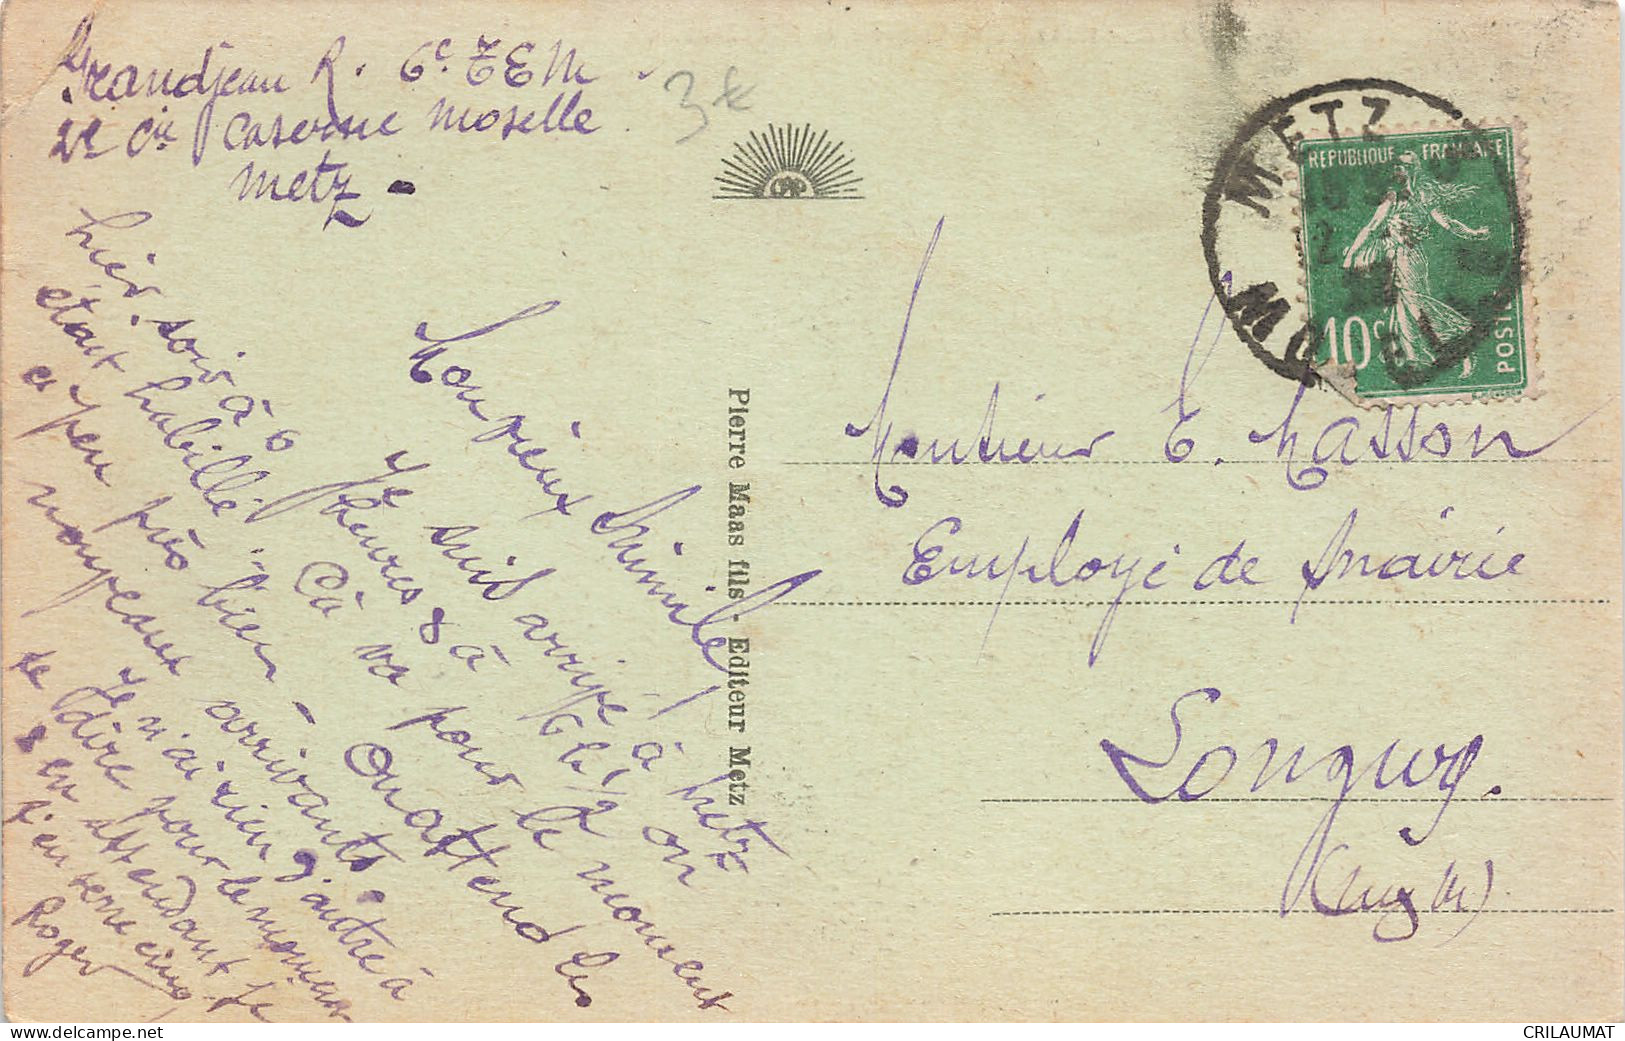 Grandjean R. 6e TEM
2e Cie Caserne Moselle
Metz -
3€
Mon vieux Emile !
Je suis arrivé à Metz
hier soir à 6 h 1/2 on
était habillé à 8
heures
à peu près bien - Çà va pour le moment
nouveaux arrivants. On attend les
Je n'ai rien d'autre à
te dire pour le moment
& en attendant je
t'en serre cinq
Roger
Pierre Maas fils - Editeur Metz
METZ
MOSELLE
REPUBLIQUE FRANCAISE
10c
POSTES
Monsieur E. Masson
Employé de Mairie
Longwy.
(M M)
www.delcampe.net
CRILAUMAT